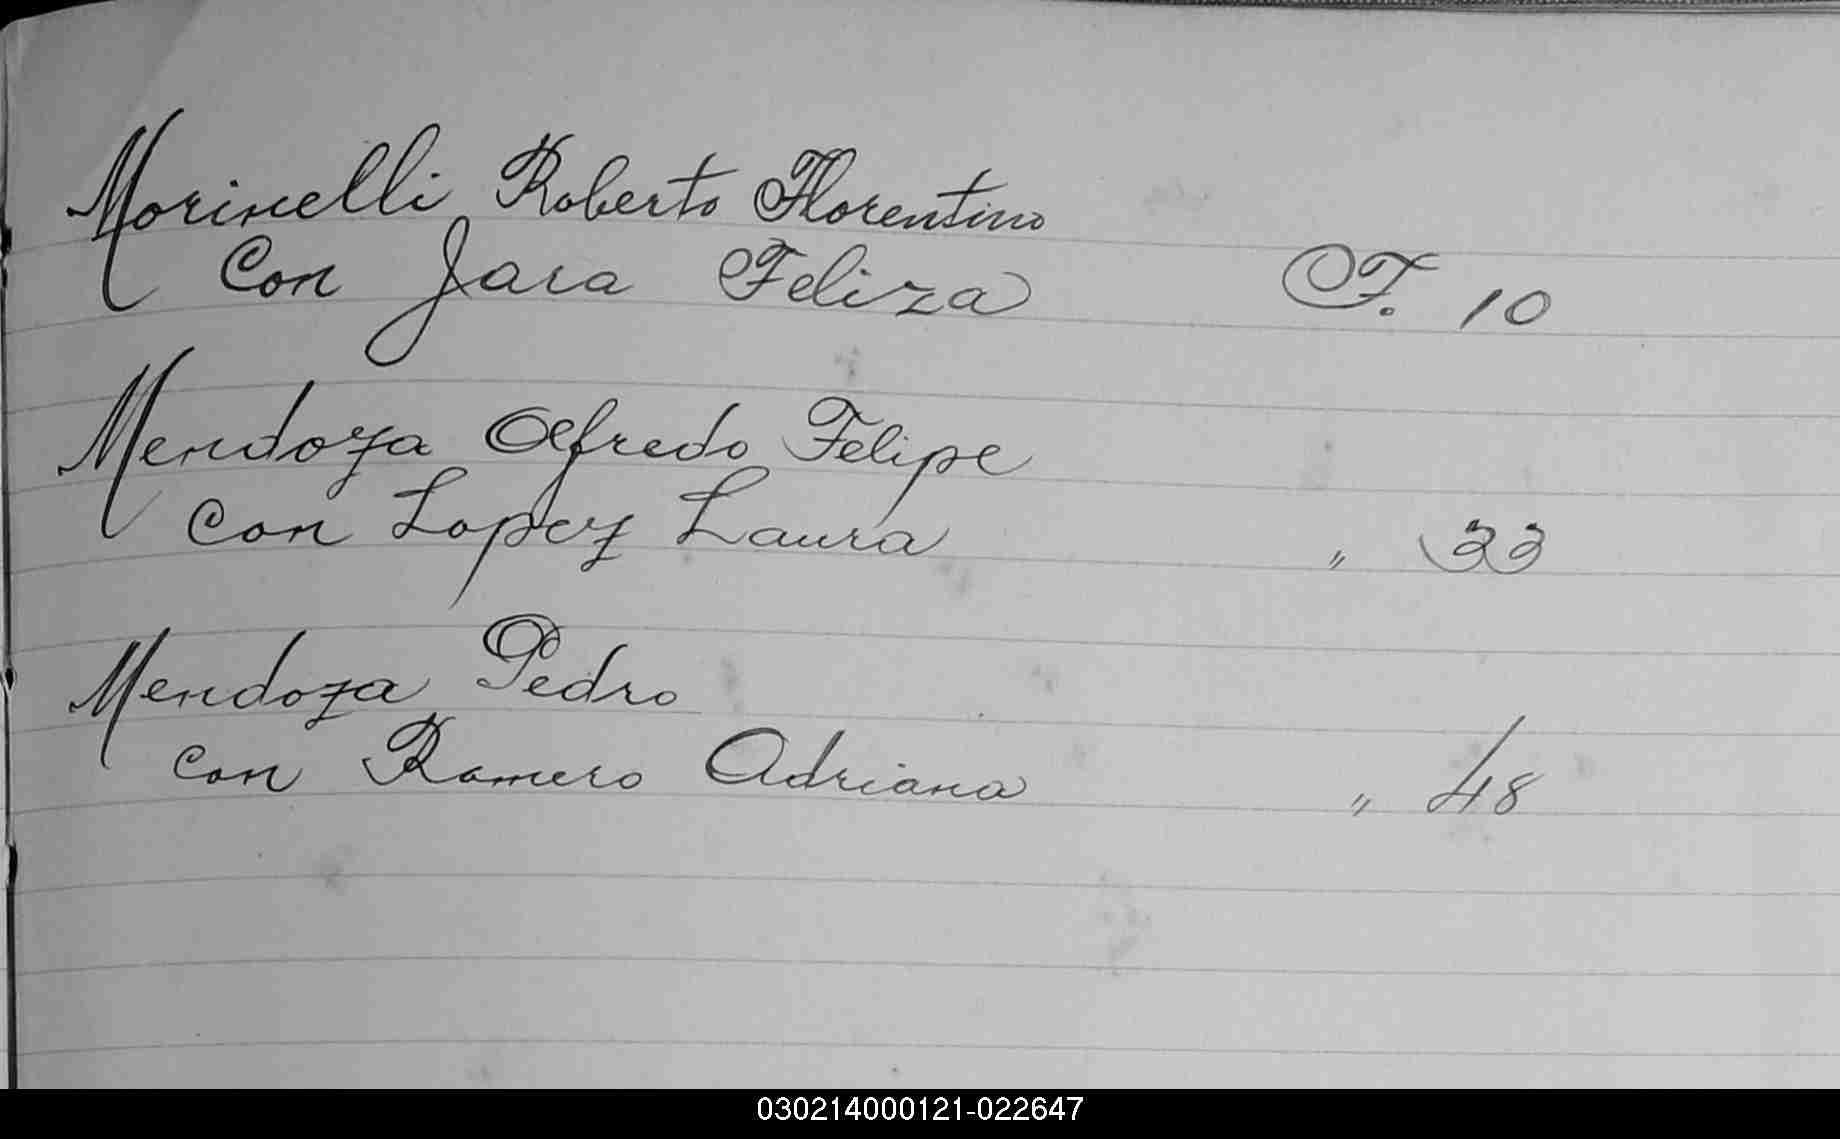 Morinelli Roberto Florentino
Con Jara Feliza F. 10
Mendoza Alfredo Felipe
con Lopez Laura " 33
Mendoza Pedro
con Romero Adriana " 48
030214000121-022647